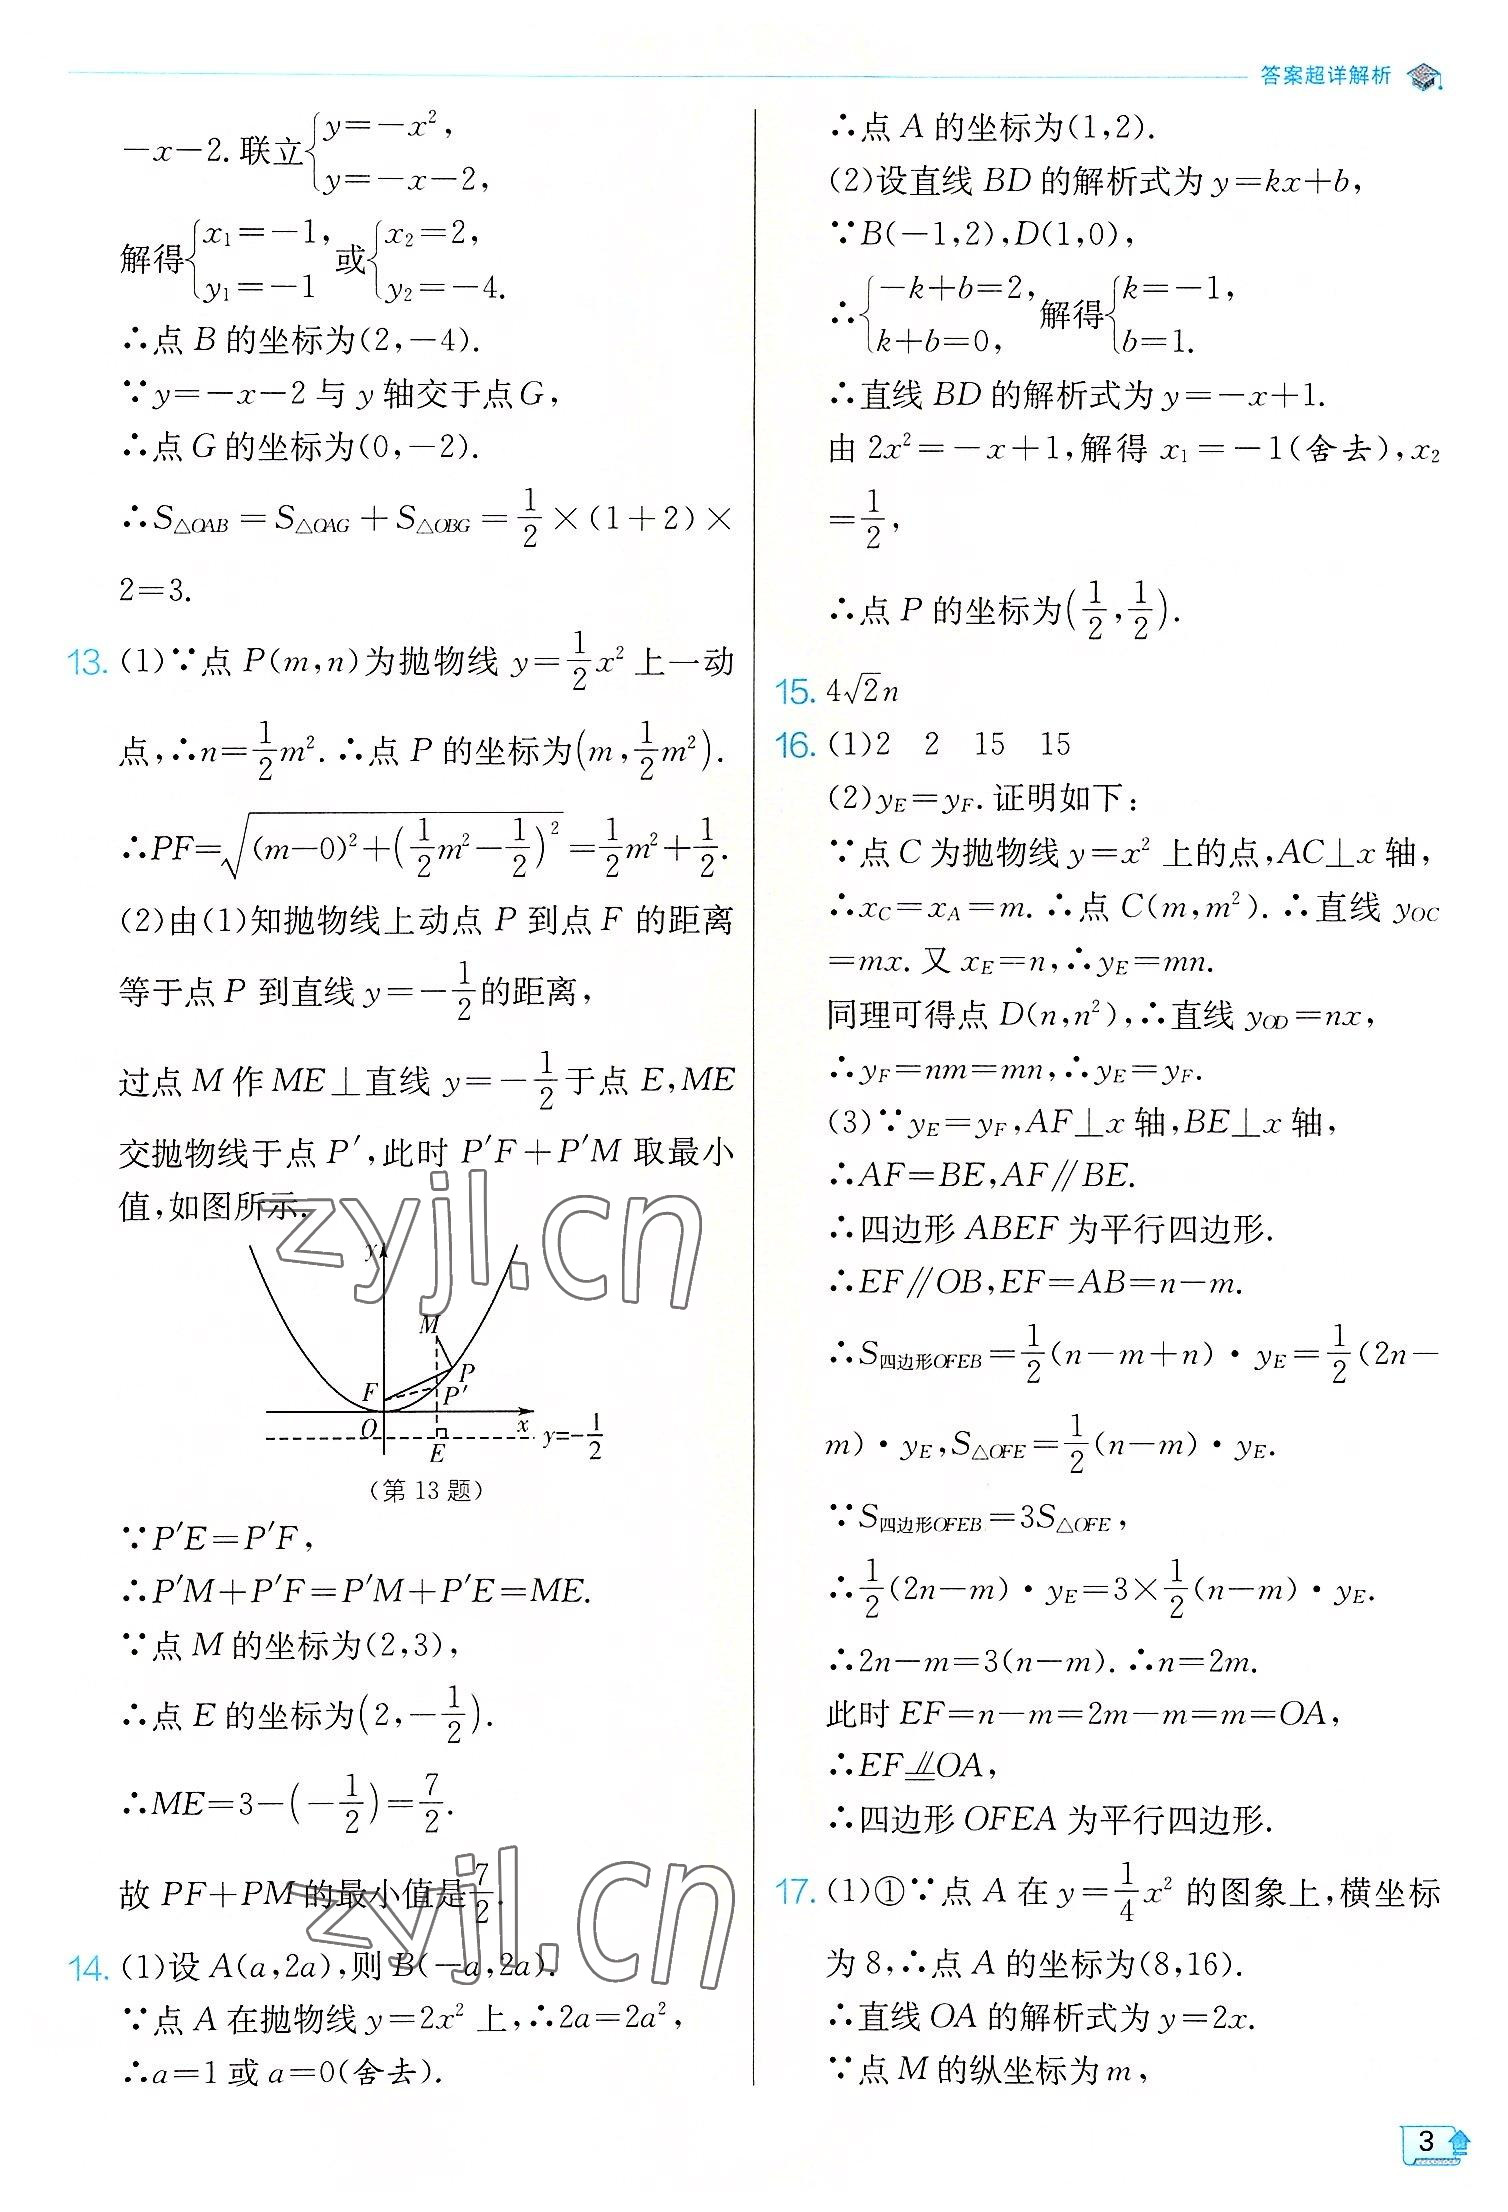 答案超详解析
-x-2. 联立{y=-x², y=-x-2,
解得{x₁=-1, y₁=-1 或{x₂=2, y₂=-4.
∴点 B 的坐标为(2,-4).
∵y=-x-2 与 y 轴交于点G,
∴点 G 的坐标为(0,-2).
∴S△OAB=S△OAG+S△OBG=1/2×(1+2)×
2=3.
13. (1)∵点 P(m,n)为抛物线 y=1/2x² 上一动
点,∴n=1/2m². ∴点 P 的坐标为(m,1/2m²).
∴PF=√((m-0)²+(1/2m²-1/2)²)=1/2m²+1/2.
(2)由(1)知抛物线上动点 P 到点 F 的距离
等于点 P 到直线 y=-1/2的距离,
过点 M 作 ME⊥直线 y=-1/2于点 E,ME
交抛物线于点 P′,此时 P′F+P′M 取最小
值,如图所示.
y
M
P
F
P′
O
x
E
y=-1/2
(第 13 题)
∵P′E=P′F,
∴P′M+P′F=P′M+P′E=ME.
∵点 M 的坐标为(2,3),
∴点 E 的坐标为(2,-1/2).
∴ME=3-(-1/2)=7/2.
故 PF+PM 的最小值是7/2.
14. (1)设 A(a,2a),则 B(-a,2a).
∵点 A 在抛物线 y=2x² 上,∴2a=2a²,
∴a=1 或 a=0(舍去).
∴点 A 的坐标为(1,2).
(2)设直线 BD 的解析式为 y=kx+b,
∵B(-1,2),D(1,0),
∴{-k+b=2, k+b=0, 解得{k=-1, b=1.
∴直线 BD 的解析式为 y=-x+1.
由 2x²=-x+1,解得 x₁=-1(舍去),x₂
=1/2,
∴点 P 的坐标为(1/2,1/2).
15. 4√2n
16. (1)2 2 15 15
(2)y_E=y_F. 证明如下:
∵点 C 为抛物线 y=x² 上的点,AC⊥x 轴,
∴x_C=x_A=m. ∴点 C(m,m²). ∴直线 y_OC
=mx. 又 x_E=n,∴y_E=mn.
同理可得点 D(n,n²),∴直线 y_OD=nx,
∴y_F=nm=mn,∴y_E=y_F.
(3)∵y_E=y_F,AF⊥x 轴,BE⊥x 轴,
∴AF=BE,AF∥BE.
∴四边形 ABEF 为平行四边形.
∴EF∥OB,EF=AB=n-m.
∴S四边形OFEB=1/2(n-m+n)·y_E=1/2(2n-
m)·y_E,S△OFE=1/2(n-m)·y_E.
∵S四边形OFEB=3S△OFE,
∴1/2(2n-m)·y_E=3×1/2(n-m)·y_E.
∴2n-m=3(n-m). ∴n=2m.
此时 EF=n-m=2m-m=m=OA,
∴EF⫽OA,
∴四边形 OFEA 为平行四边形.
17. (1)①∵点 A 在 y=1/4x² 的图象上,横坐标
为 8,∴点 A 的坐标为(8,16).
∴直线 OA 的解析式为 y=2x.
∵点 M 的纵坐标为 m,
3
zyjl.cn
zyjl.cn